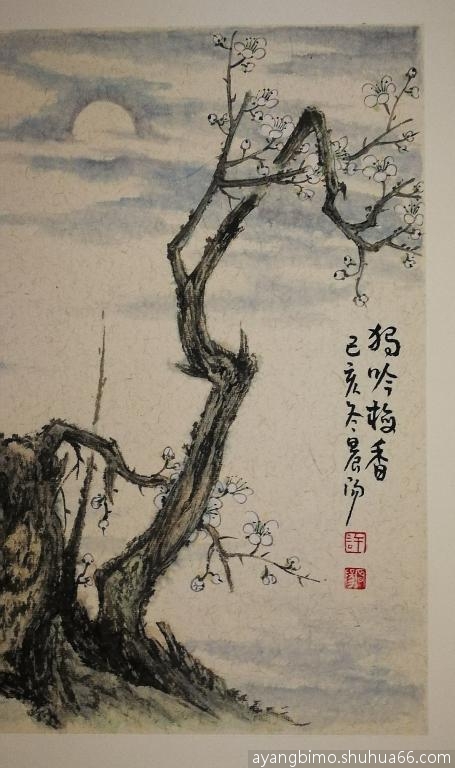 獨吟梅香
己亥冬晨陽
許
ayangbimo.shuhua66.com